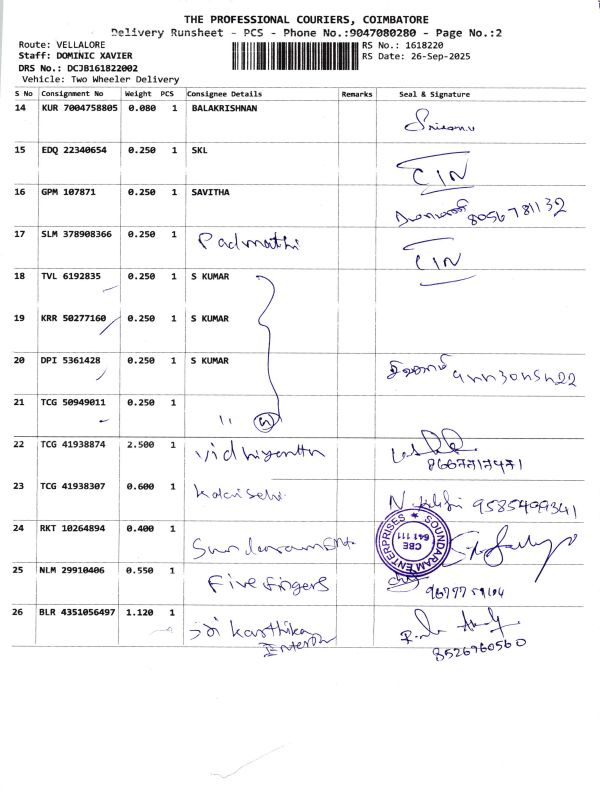 THE PROFESSIONAL COURIERS, COIMBATORE
Delivery Runsheet - PCS - Phone No.:9047080280 - Page No.:2
Route: VELLALORE
RS No.: 1618220
Staff: DOMINIC XAVIER
RS Date: 26-Sep-2025
DRS No.: DCJB161822002
Vehicle: Two Wheeler Delivery
S No Consignment No Weight PCS Consignee Details Remarks Seal & Signature
14 KUR 7004758805 0.080 1 BALAKRISHNAN
15 EDQ 22340654 0.250 1 SKL CIN
16 GPM 107871 0.250 1 SAVITHA 8056781132
17 SLM 378908366 0.250 1 Padmathi CIN
18 TVL 6192835 0.250 1 S KUMAR
19 KRR 50277160 0.250 1 S KUMAR
20 DPI 5361428 0.250 1 S KUMAR
21 TCG 50949011 0.250 1
22 TCG 41938874 2.500 1 8667717971
23 TCG 41938307 0.600 1 9585499341
24 RKT 10264894 0.400 1
SOUNDARAM ENTERPRISES
CBE
641 111
25 NLM 29910406 0.550 1 Five fingers
26 BLR 4351056497 1.120 1 Sri Karthika
8526960560